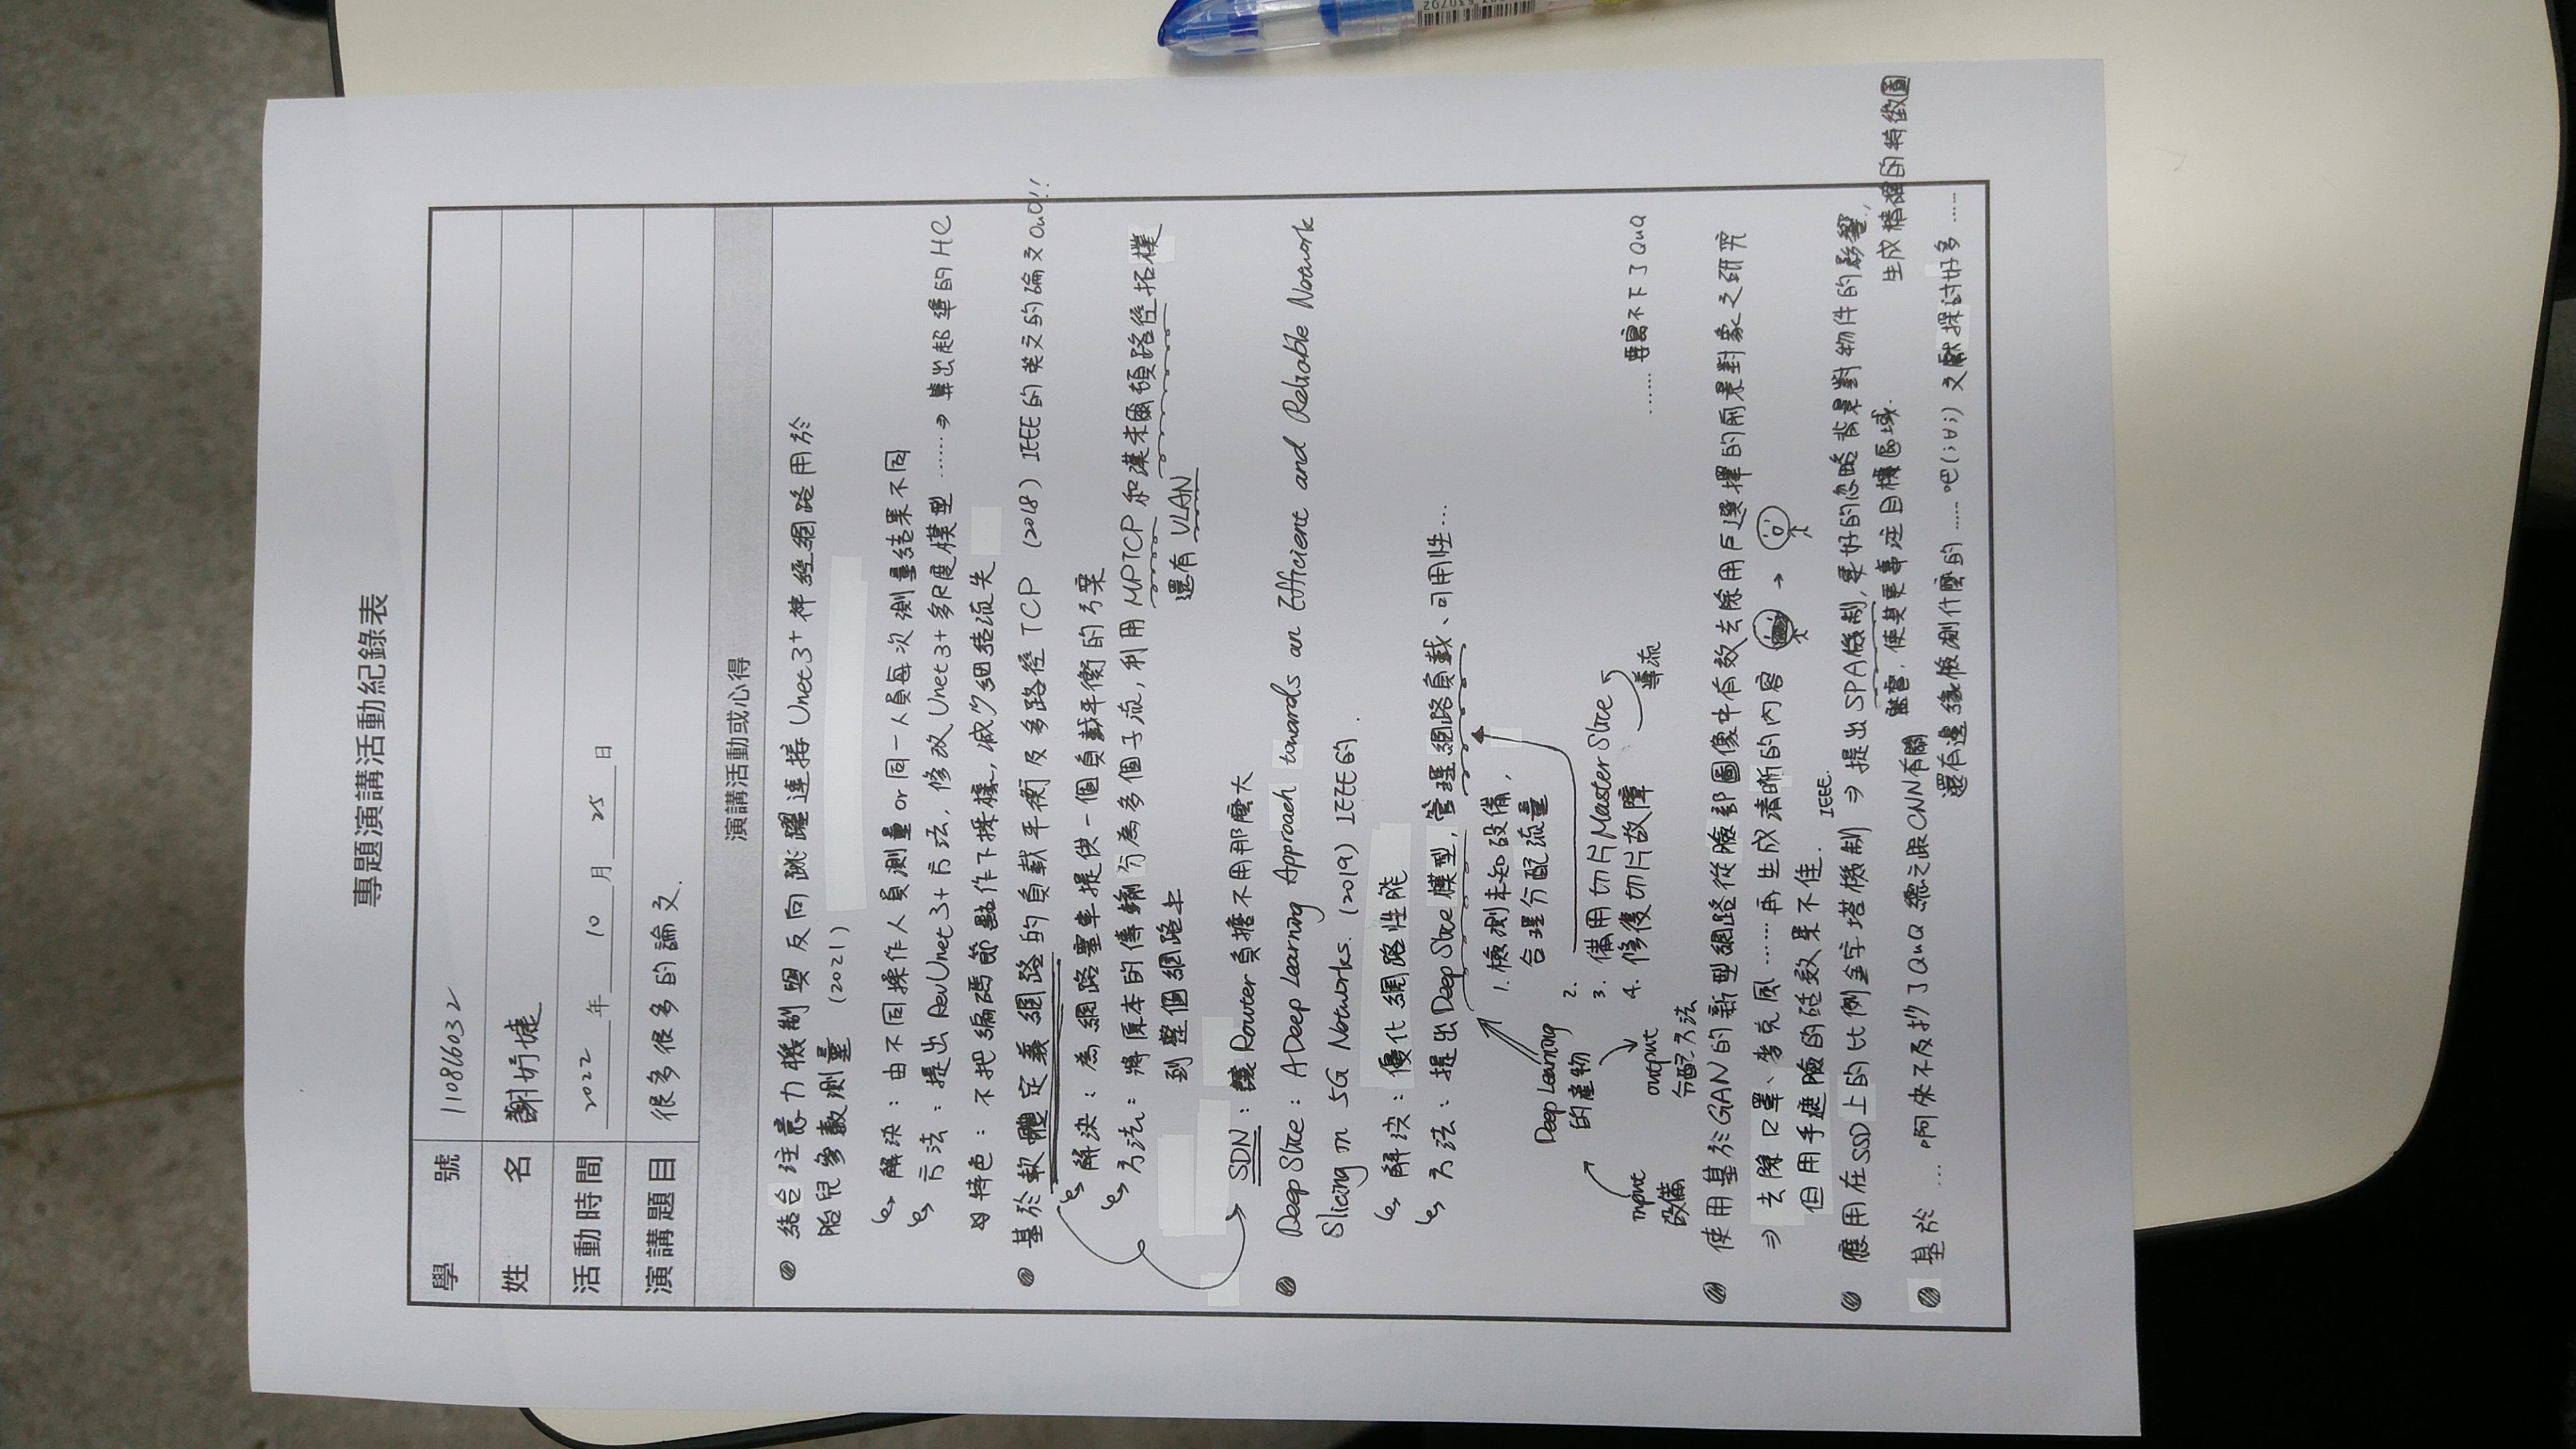 專題演講活動紀錄表
學 號 110816032
姓 名 謝妤婕
活動時間 2022 年 10 月 25 日
演講題目 很多很多的論文.
演講活動或心得
結合注意力機制與反向跳躍連接Unet3+神經網路用於
胎兒參數測量 (2021)
解決：由不同操作人員測量or同一人員每次測量結果不同
方法：提出RevUnet3+方法, 修改Unet3+多尺度模型……⇒算出超準的HC
特色：不把編碼節點作下採樣, 減少細結流失
基於軟體定義網路的負載平衡及多路徑TCP (2018) IEEE的英文的論文OuO!!
解決：為網路塞車提供一個負載平衡的方案
方法：將原本的傳輸分為多個子流, 利用MPTCP和漢米爾頓路徑拓樸
到整個網路上 還有VLAN
SDN：讓Router負擔不用那麼大
Deep Slice: A Deep Learning Approach towards an Efficient and Reliable Network
Slicing in 5G Networks. (2019) IEEE的.
解決：優化網路性能
方法：提出Deep Slice模型, 管理網路負載、可用性…
1. 檢測未知設備,
合理分配流量
Deep Learning
的產物
2.
3. 備用切片Master Slice
4. 修復切片故障
導流
input
設備
output
分配方法
……要寫不下了QuQ
使用基於GAN的新型網路從臉部圖像中有效去除用戶選擇的前景對象之研究
⇒ 去除口罩、麥克風……再生成清晰的內容 →
但用手遮臉的話效果不佳.
IEEE.
應用在SSD上的比例金字塔機制 ⇒ 提出SPA機制, 更好的忽略背景對物件的影響,
監督, 使其更專注目標區域. 生成精確的特徵圖
基於 … 啊來不及抄了QuQ 總之跟CNN有關
還有邊緣檢測什麼的……吧(;∀;) 文獻探討好多……